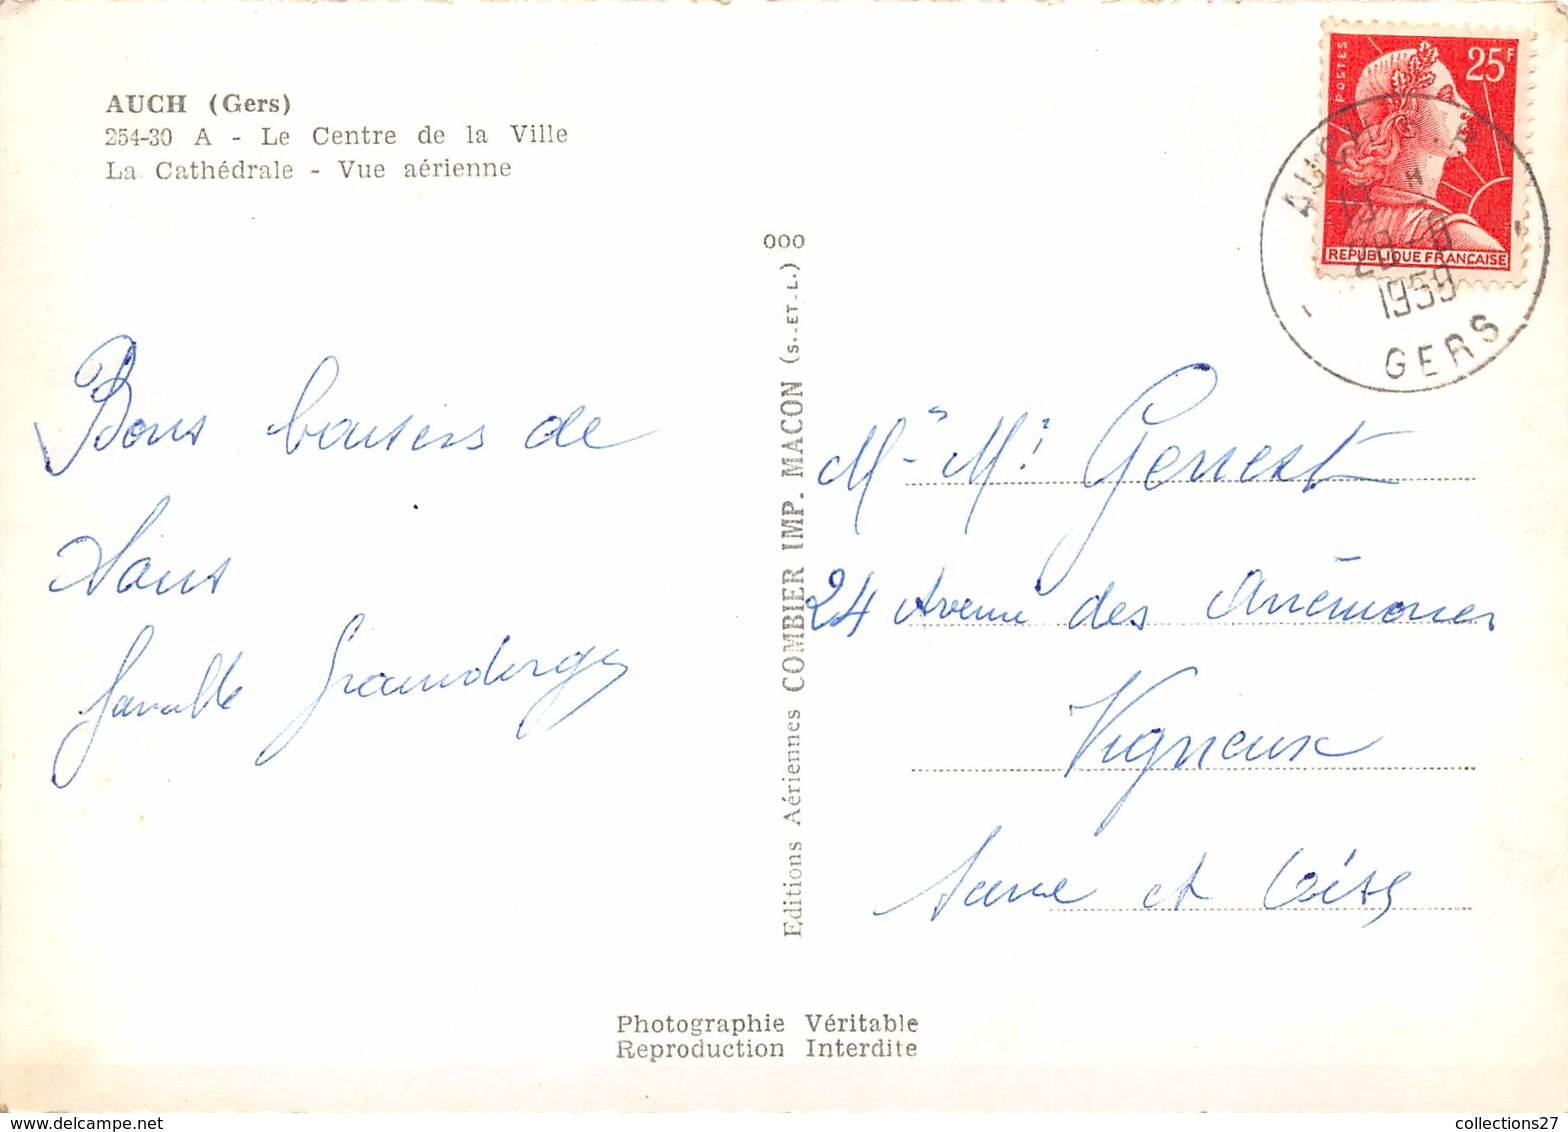 AUCH (Gers)
254-30 A - Le Centre de la Ville
La Cathédrale - Vue aérienne
Bons baisers de
tous
famille
000
Editions Aériennes COMBIER IMP. MACON (S.-ET-L.)
POSTES
25F
REPUBLIQUE FRANÇAISE
AUCH R.P
17 H
28-8
1959
GERS
Mr Me Genest
24 Avenue des Anémones
Vigneux
Seine et Oise
Photographie Véritable
Reproduction Interdite
collections27